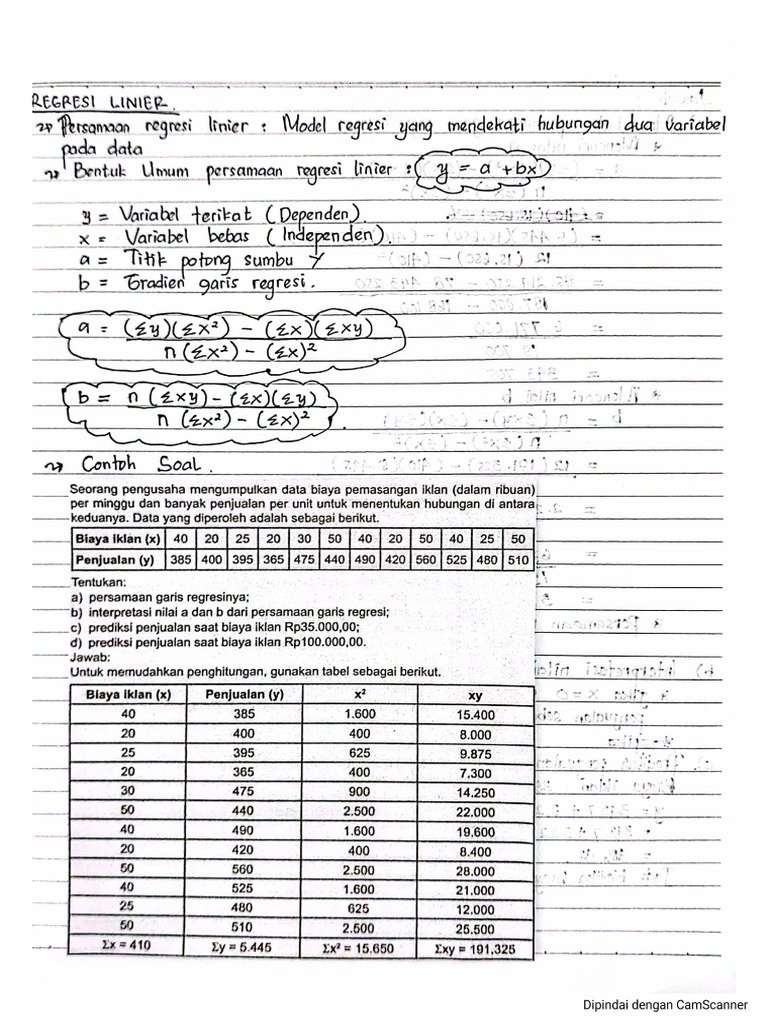 REGRESI LINIER.
Persamaan regresi linier : Model regresi yang mendekati hubungan dua Variabel
pada data
Bentuk Umum persamaan regresi linier : y = a + bx
y = Variabel terikat (Dependen).
x = Variabel bebas (Independen).
a = Titik potong sumbu Y
b = Gradien garis regresi.
a = (Σy)(Σx²) - (Σx)(Σxy)
n(Σx²) - (Σx)²
b = n(Σxy) - (Σx)(Σy)
n(Σx²) - (Σx)²
Contoh Soal.
Seorang pengusaha mengumpulkan data biaya pemasangan iklan (dalam ribuan)
per minggu dan banyak penjualan per unit untuk menentukan hubungan di antara
keduanya. Data yang diperoleh adalah sebagai berikut.
Biaya Iklan (x) 40 20 25 20 30 50 40 20 50 40 25 50
Penjualan (y) 385 400 395 365 475 440 490 420 560 525 480 510
Tentukan:
a) persamaan garis regresinya;
b) interpretasi nilai a dan b dari persamaan garis regresi;
c) prediksi penjualan saat biaya iklan Rp35.000,00;
d) prediksi penjualan saat biaya iklan Rp100.000,00.
Jawab:
Untuk memudahkan penghitungan, gunakan tabel sebagai berikut.
Biaya Iklan (x) Penjualan (y) x² xy
40 385 1.600 15.400
20 400 400 8.000
25 395 625 9.875
20 365 400 7.300
30 475 900 14.250
50 440 2.500 22.000
40 490 1.600 19.600
20 420 400 8.400
50 560 2.500 28.000
40 525 1.600 21.000
25 480 625 12.000
50 510 2.500 25.500
Σx = 410 Σy = 5.445 Σx² = 15.650 Σxy = 191,325
Dipindai dengan CamScanner